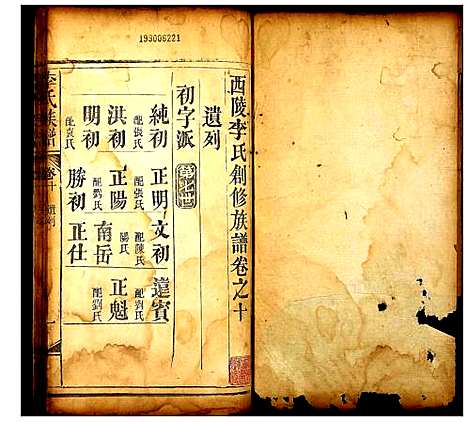 193006221
西陵李氏創修族譜卷之十
遺列
初字派
純初 配張氏 正明 文初 配陳氏 遠賓
洪初 正陽 配張氏 南岳 陽氏 正魁 配劉氏
明初 配袁氏 勝初 配劉氏 正仕 配劉氏
李氏族譜 卷十 遺列 一